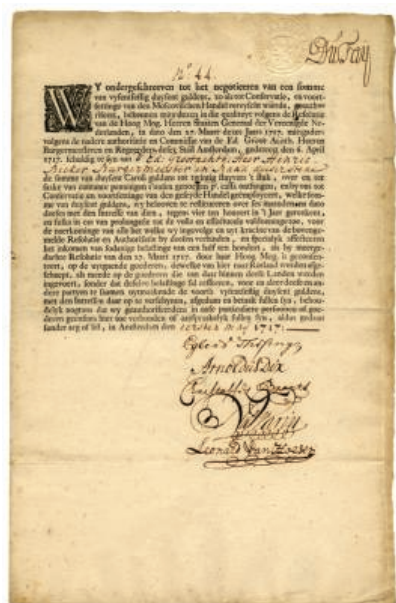 Du Fay
N.° 44.
WY ondergeschreeven tot het negotieeren van een somme
van vyfentsestig duysent guldens, zo als tot Conservatie, en voort-
settinge van den Moscovischen Handel vereyscht wierde,
riseert, bekennen mits deesen in die qualiteyt volgens de Resolutie
van de Hoog Mog. Heeren Staaten Generael der Vereenigde Ne-
derlanden, in dato den 27. Maart deses Jaars 1717. mitsgaders
volgens de nadere authorisatie en Commissie van de Ed. Groot Achtb. Heeren
Burgermeesteren en Regeerders deser Stad Amsterdam, gedateert den 6. April
1717. schuldig te syn van d' Ed. Heer Henric
Becker Burgermeester en Raad
de somme van duysent Caroli guldens tot twintig stuyvers 't stuk, over en ter
saake van contante penningen t'onsen genoegen p.r cassa ontfangen, en by ons tot
Conservatie en voortsettinge van den geseyde Handel geemployeert, welke som-
me van duysent guldens, wy beloven te restitueeren over ses maanden na dato
deeses met den Intresse van dien, tegens vier ten hondert in 't Jaar gereekent,
en sulcx in cas van prolongatie tot de volle en effectueele voldoeninge toe, voor
de naarkominge van alle het welke wy ingevolge en uyt krachte van de bovenge-
melde Resolutie en Authorisatie by deesen verbinden, en specialyk affecteeren
het inkomen van sodanige belastinge van een half ten hondert, als by meerge-
dachte Resolutie van den 27. Maart 1717. door haar Hoog Mog. is geconsen-
teert, op de uytgaande goederen, dewelke van hier naar Rusland werden afge-
scheept, als meede op de goederen die van daar binnen deese Landen werden
ingevoert, sonder dat deselve belastinge sal cesseeren, voor en aleer deese en an-
dere partyen te samen uytmaakende de voorsz vyfentsestig duysent guldens,
met den Intresse daar op te verschynen, afgedaan en betaalt sullen syn, behou-
delyk nogtans dat wy geauthoriseerdens in onse particuliere persoonen of goe-
deren geensints hier toe verbonden of aanspraakelyk sullen syn, alles gedaan
sonder arg of list, in Amsterdam den eersten May 1717.
Egbert Thesingh
Arnoldus Dix
Leonard van